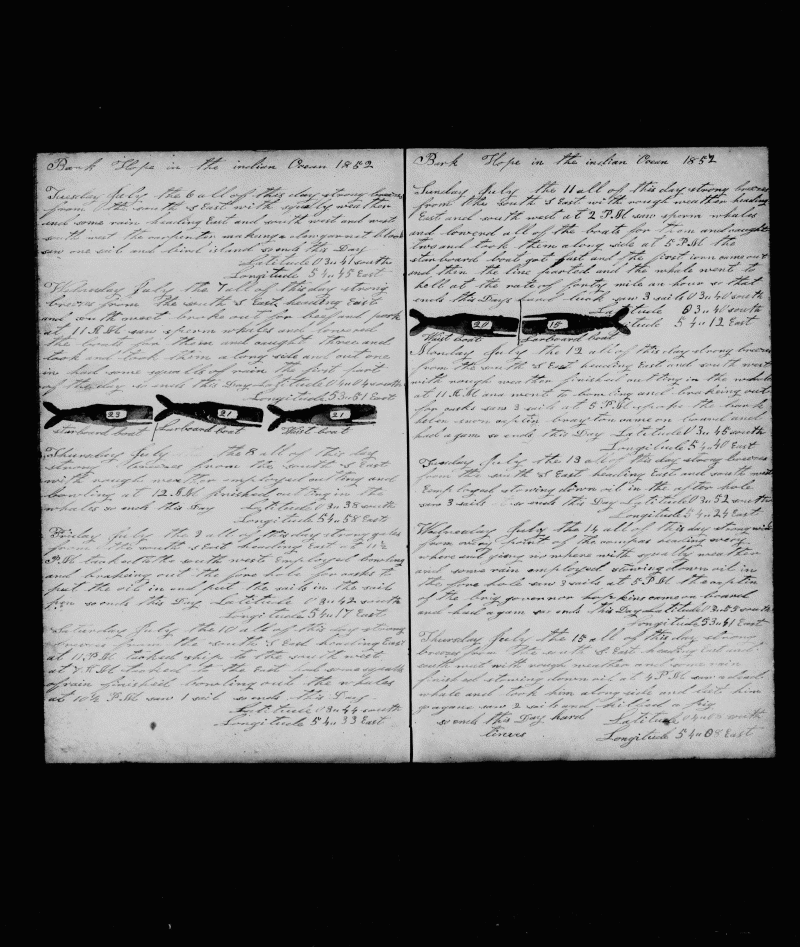 Bark Hope in the indian Ocean 1852
Tuesday July the 6 all of this day strong breezes
from the south & East with squaly weather
and some rain heading East and south west and west
south west the carpenter making a clewgarnet block
saw one sail and bird island so ends this Day
Latitude 03 u 41 south
Longitude 54 u 45 East
Wednesday July the 7 all of this day strong
breezes from the south & East heading East
and south west broke out for beef and pork
at 11 A M saw sperm whales and lowered
the boats for them and caught three and
took them along side and cut one
in had some squalls of rain the first part
of the day so ends this Day Latitude 04 u 04 south
Longitude 53 u 51 East
23 21 21
Starboard boat Larboard boat Waist boat
Thursday July the 8 all of this day
strong breezes from the south & East
with rough weather employed cutting and
bowling at 12 A M finished cutting in the
whales so ends this Day Latitude 03 u 38 south
Longitude 54 u 58 East
Friday July the 9 all of this day strong gales
from the south & East heading East at 11½
P M tackt to the south west Employed bowling
and braking out the fore hole for casks to
put the oil in and put the sails in the sail
pen so ends this Day Latitude 03 u 42 south
Longitude 54 u 17 East
Saturday July the 10 all of this day strong
breezes from the south & East heading East
at 11 P M tackt ship to the south west
at A M to the East had some squalls
of rain finished bowling out the whales
at 10½ P M saw 1 sail so ends this Day
Latitude 03 u 44 south
Longitude 54 u 33 East
Bark Hope in the indian Ocean 1852
Sunday July the 11 all of this day strong breezes
from the south & East with rough weather heading
East and south west at 2 P M saw sperm whales
and lowered all of the boats for them and caught
two and took them along side at 5 P M the
starboard boat got fast and the first iron came out
and then the line parted and the whale went to
hell at the rate of forty mile an hour so that
ends this Days hard luck saw 3 sails 03 u 40 south
Latitude 03 u 40 south
Longitude 54 u 12 East
20 15
Waist boat Larboard boat
Monday July the 12 all of this day strong breezes
from the south & East heading East and south west
with rough weather finished cutting in the whales
at 11 A M went to bowling and braking out
for casks saw 3 sails at 5 P M the bark
helen came on board and
had a gam so ends this Day Latitude 03 u 45 south
Longitude 54 u 40 East
Tuesday July the 13 all of this day strong breezes
from the south & East heading East and south west
Employed stowing down oil in the after hole
saw 3 sails so ends this Day Latitude 03 u 52 south
Longitude 54 u 24 East
Wednesday July the 14 all of this day strong winds
from every point of the compas heading every
where and going no where with squally weather
and some rain employed stowing down oil in
the fore hole saw 3 sails at 5 P M the captin
of the brig govenor hopkins came on board
and had a gam so ends this Day Latitude 03 u 53 south
Longitude 53 u 41 East
Thursday July the 15 all of this day strong
breezes from the south & East heading East and
south west with rough weather and some rain
finished stowing down oil at 4 P M saw a dead
whale and took him along side and let him
go again saw 2 sails and killed a pig
so ends this Day hard Latitude 04 u south
times Longitude 54 u 08 East